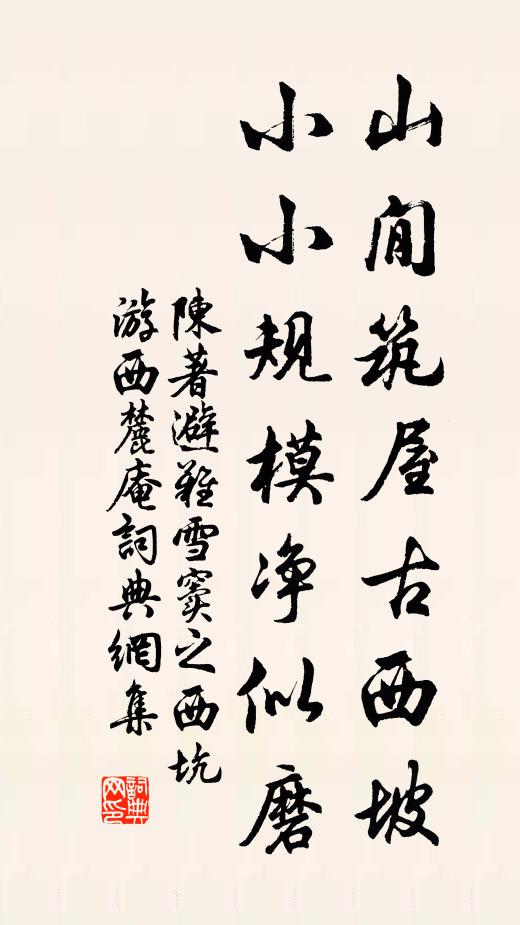 山間筑屋古西坡
小小規模净似磨
陳著避難雪竇之西坑
游西麓庵詞典網集
詞典网印